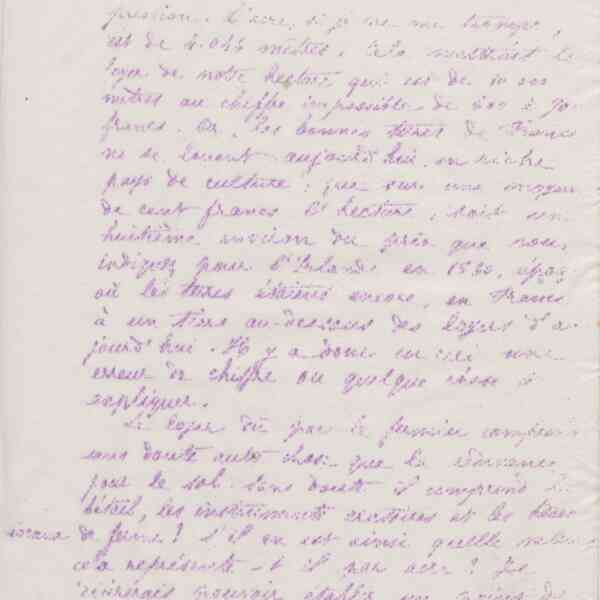 pression. L'acre, si je ne me trompe,
est de 4.044 mètres. Cela mettrait le
loyer de notre hectare qui est de 10 000
mètres au chiffre impossible de
francs. Or, les bonnes terres de France
ne se louent aujourd'hui, en riche
pays de culture, que sur une moyen
de cent francs l'hectare, soit un
huitième environ du prix que vous
indiquez pour l'Irlande en 1830, époq
où les terres étaient encore, en France
à un tiers au-dessous des loyers d'au
jourd'hui. Il y a donc en ceci une
erreur de chiffre ou quelque chose à
expliquer.
Le loyer dû par le fermier comprend
sans doute autre chose que la
pour le sol. Sans doute il comprend le
bétail, les instruments aratoires et les
locaux de ferme? S'il en est ainsi quelle valeur
cela représente-t-il par acre? Je
désirerais pouvoir établir un de